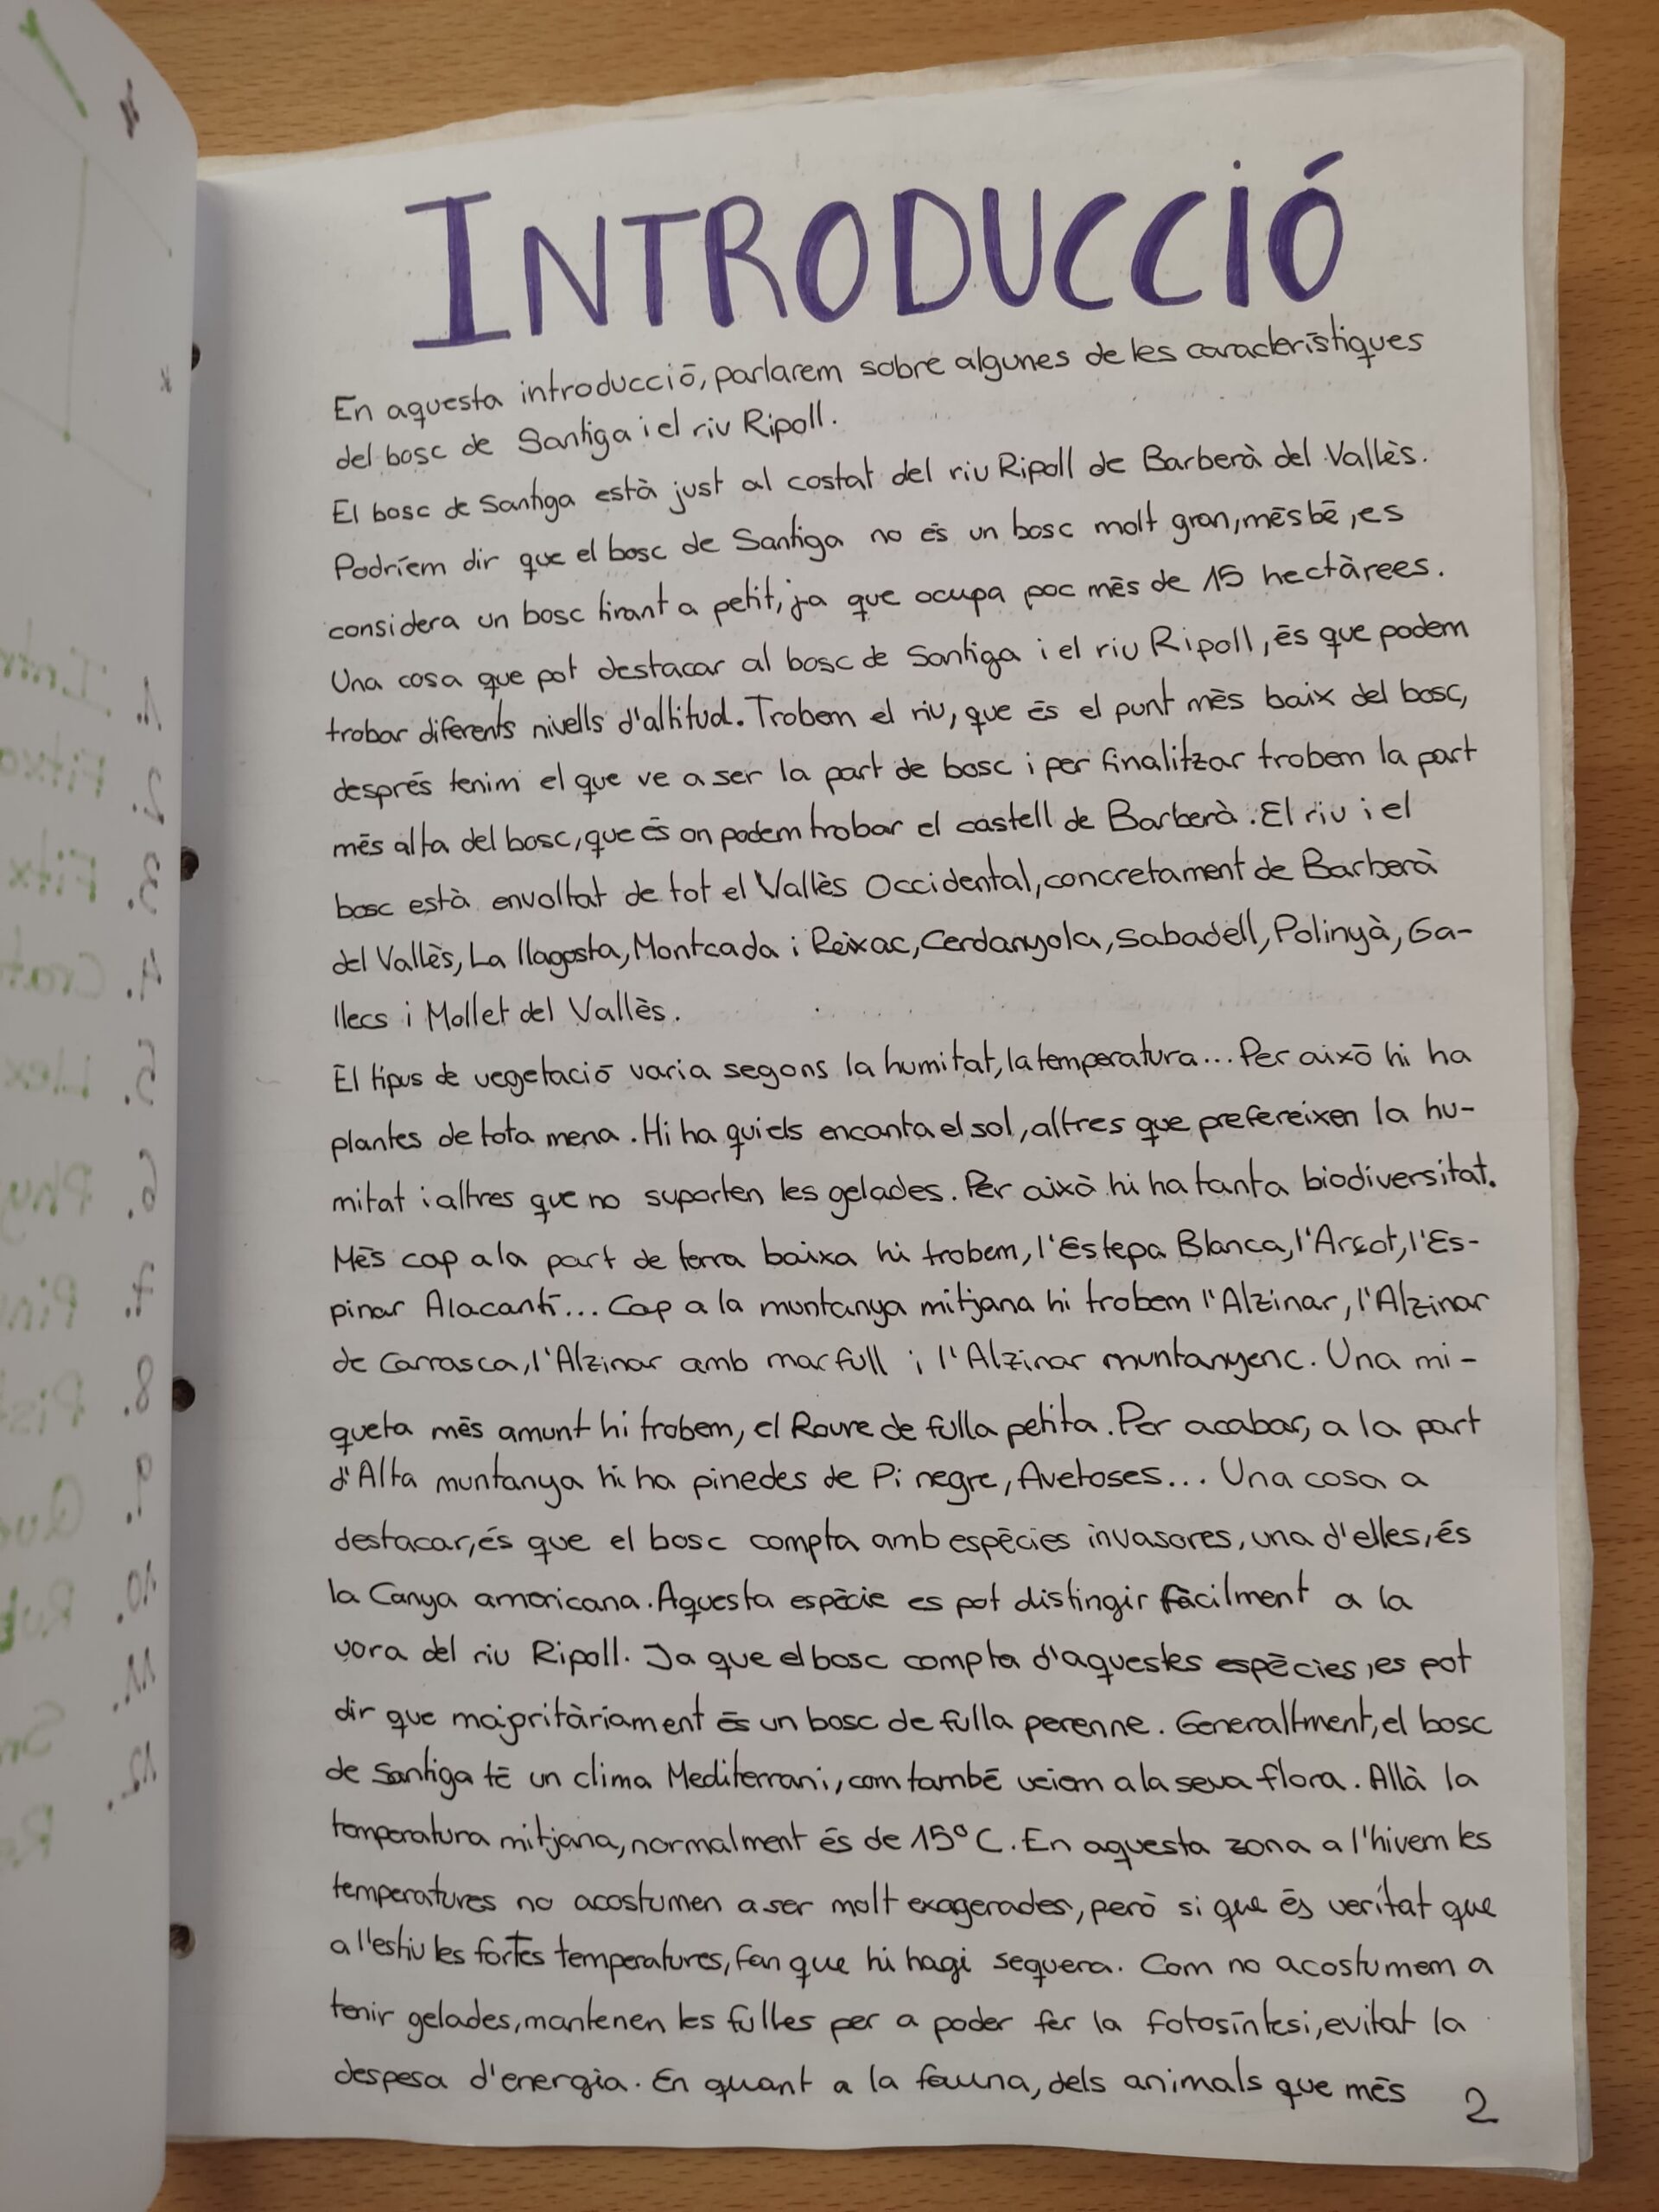 INTRODUCCIÓ
En aquesta introducció, parlarem sobre algunes de les característiques
del bosc de Santiga i el riu Ripoll.
El bosc de Santiga està just al costat del riu Ripoll de Barberà del Vallès.
Podríem dir que el bosc de Santiga no és un bosc molt gran, més bé, es
considera un bosc tirant a petit, ja que ocupa poc més de 15 hectàrees.
Una cosa que pot destacar al bosc de Santiga i el riu Ripoll, és que podem
trobar diferents nivells d'altitud. Trobem el riu, que és el punt mès baix del bosc,
després tenim el que ve a ser la part de bosc i per finalitzar trobem la part
més alta del bosc, que és on podem trobar el castell de Barberà. El riu i el
bosc està envoltat de tot el Vallès Occidental, concretament de Barberà
del Vallès, La llagosta, Montcada i Reixac, Cerdanyola, Sabadell, Polinyà, Ga-
llecs i Mollet del Vallès.
El tipus de vegetació varia segons la humitat, la temperatura... Per aixó hi ha
plantes de tota mena. Hi ha qui els encanta el sol, altres que prefereixen la hu-
mitat i altres que no suporten les gelades. Per aixà hi ha tanta biodiversitat.
Més cap a la part de terra baixa hi trobem, l'Estepa Blanca, l'Arçot, l'Es-
pinar Alacantí... Cap a la muntanya mitjana hi trobem l'Alzinar, l'Alzinar
de Carrasca, l'Alzinar amb marfull i l'Alzinar muntanyenc. Una mi-
queta més amunt hi trobem, el Roure de fulla petita. Per acabar, a la part
d'Alta muntanya hi ha pinedes de Pi negre, Avetoses... Una cosa a
destacar, és que el bosc compta amb espècies invasores, una d'elles, és
la Canya americana. Aquesta espècie es pot distingir fàcilment a la
vora del riu Ripoll. Ja que el bosc compta d'aquestes espècies, es pot
dir que majoritàriament és un bosc de fulla perenne. Generaltment, el bosc
de Santiga té un clima Mediterrani, com també veiem a la seva flora. Allà la
temperatura mitjana, normalment és de 15°C. En aquesta zona a l'hivern les
temperatures no acostumen a ser molt exagerades, però si que és veritat que
a l'estiu les fortes temperatures, fan que hi hagi sequera. Com no acostumem a
tenir gelades, mantenen les fulles per a poder fer la fotosíntesi, evitat la
despesa d'energia. En quant a la fauna, dels animals que més
2